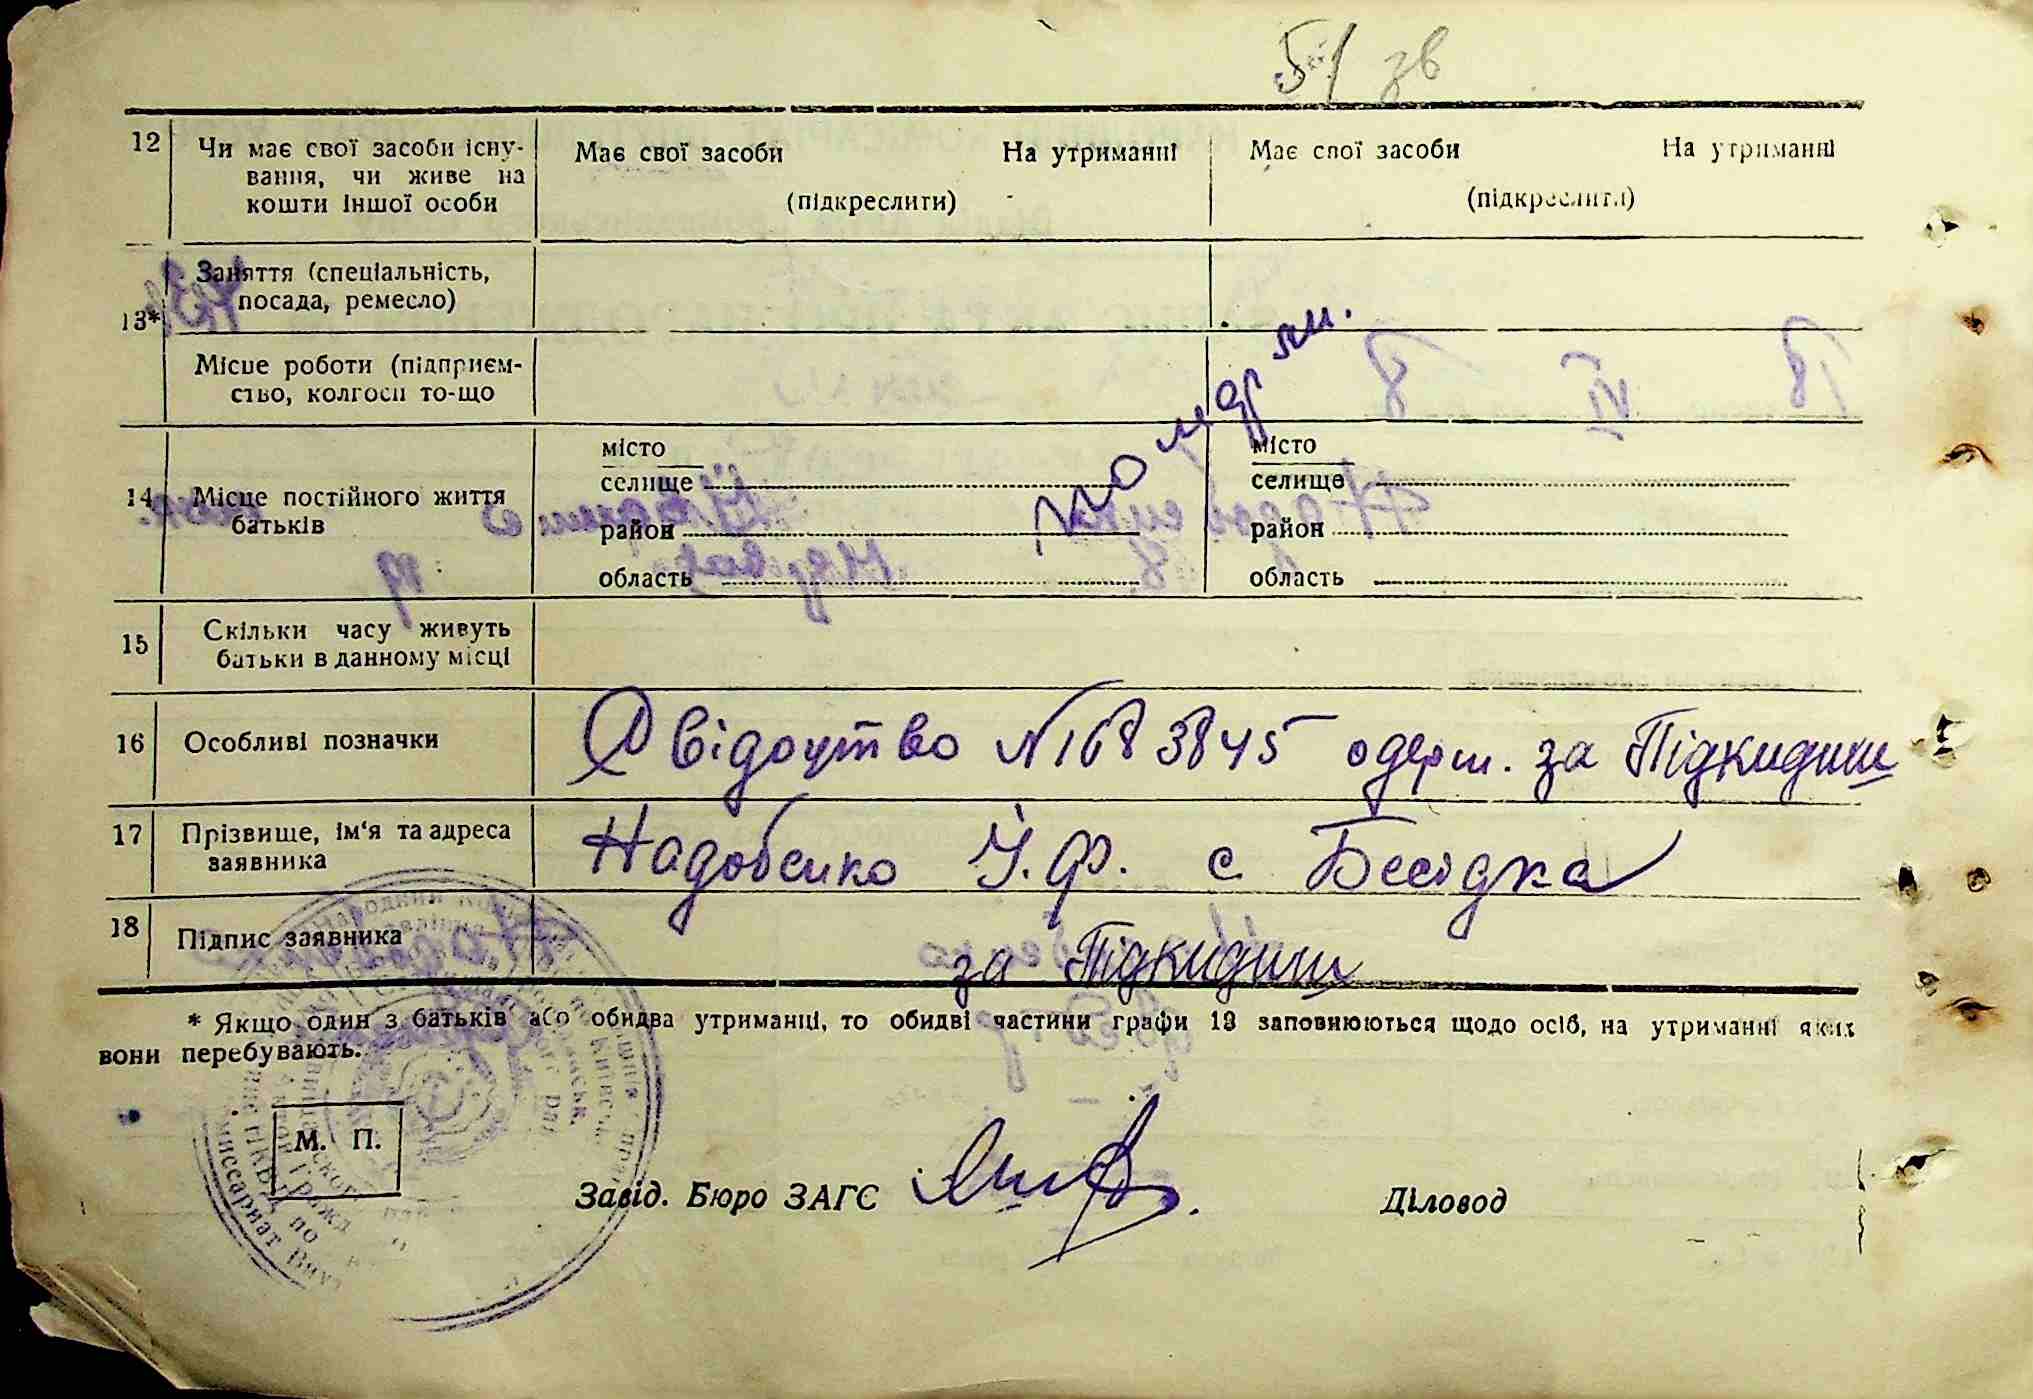 51 зв
12 Чи має свої засоби існу- Має свої засоби На утриманні Має свої засоби На утриманні
вання, чи живе на
кошти іншої особи (підкреслити) (підкреслити)
Заняття (спеціальність,
посада, ремесло)
13*
Місце роботи (підприєм-
ство, колгосп то-що
місто місто
14 Місце постійного життя селище селище
батьків район район
область область
15 Скільки часу живуть
батьки в данному місці
16 Особливі позначки Свідоцтво №1683845 одерж. за Підкидиш
17 Прізвище, ім'я та адреса Надобенко У.Ф. с. Бесідка
заявника
18 Підпис заявника за Підкидиш
* Якщо один з батьків або обидва утриманці, то обидві частини графи 13 заповнюються щодо осіб, на утриманні яких
вони перебувають.
М. П.
Завід. Бюро ЗАГС Діловод